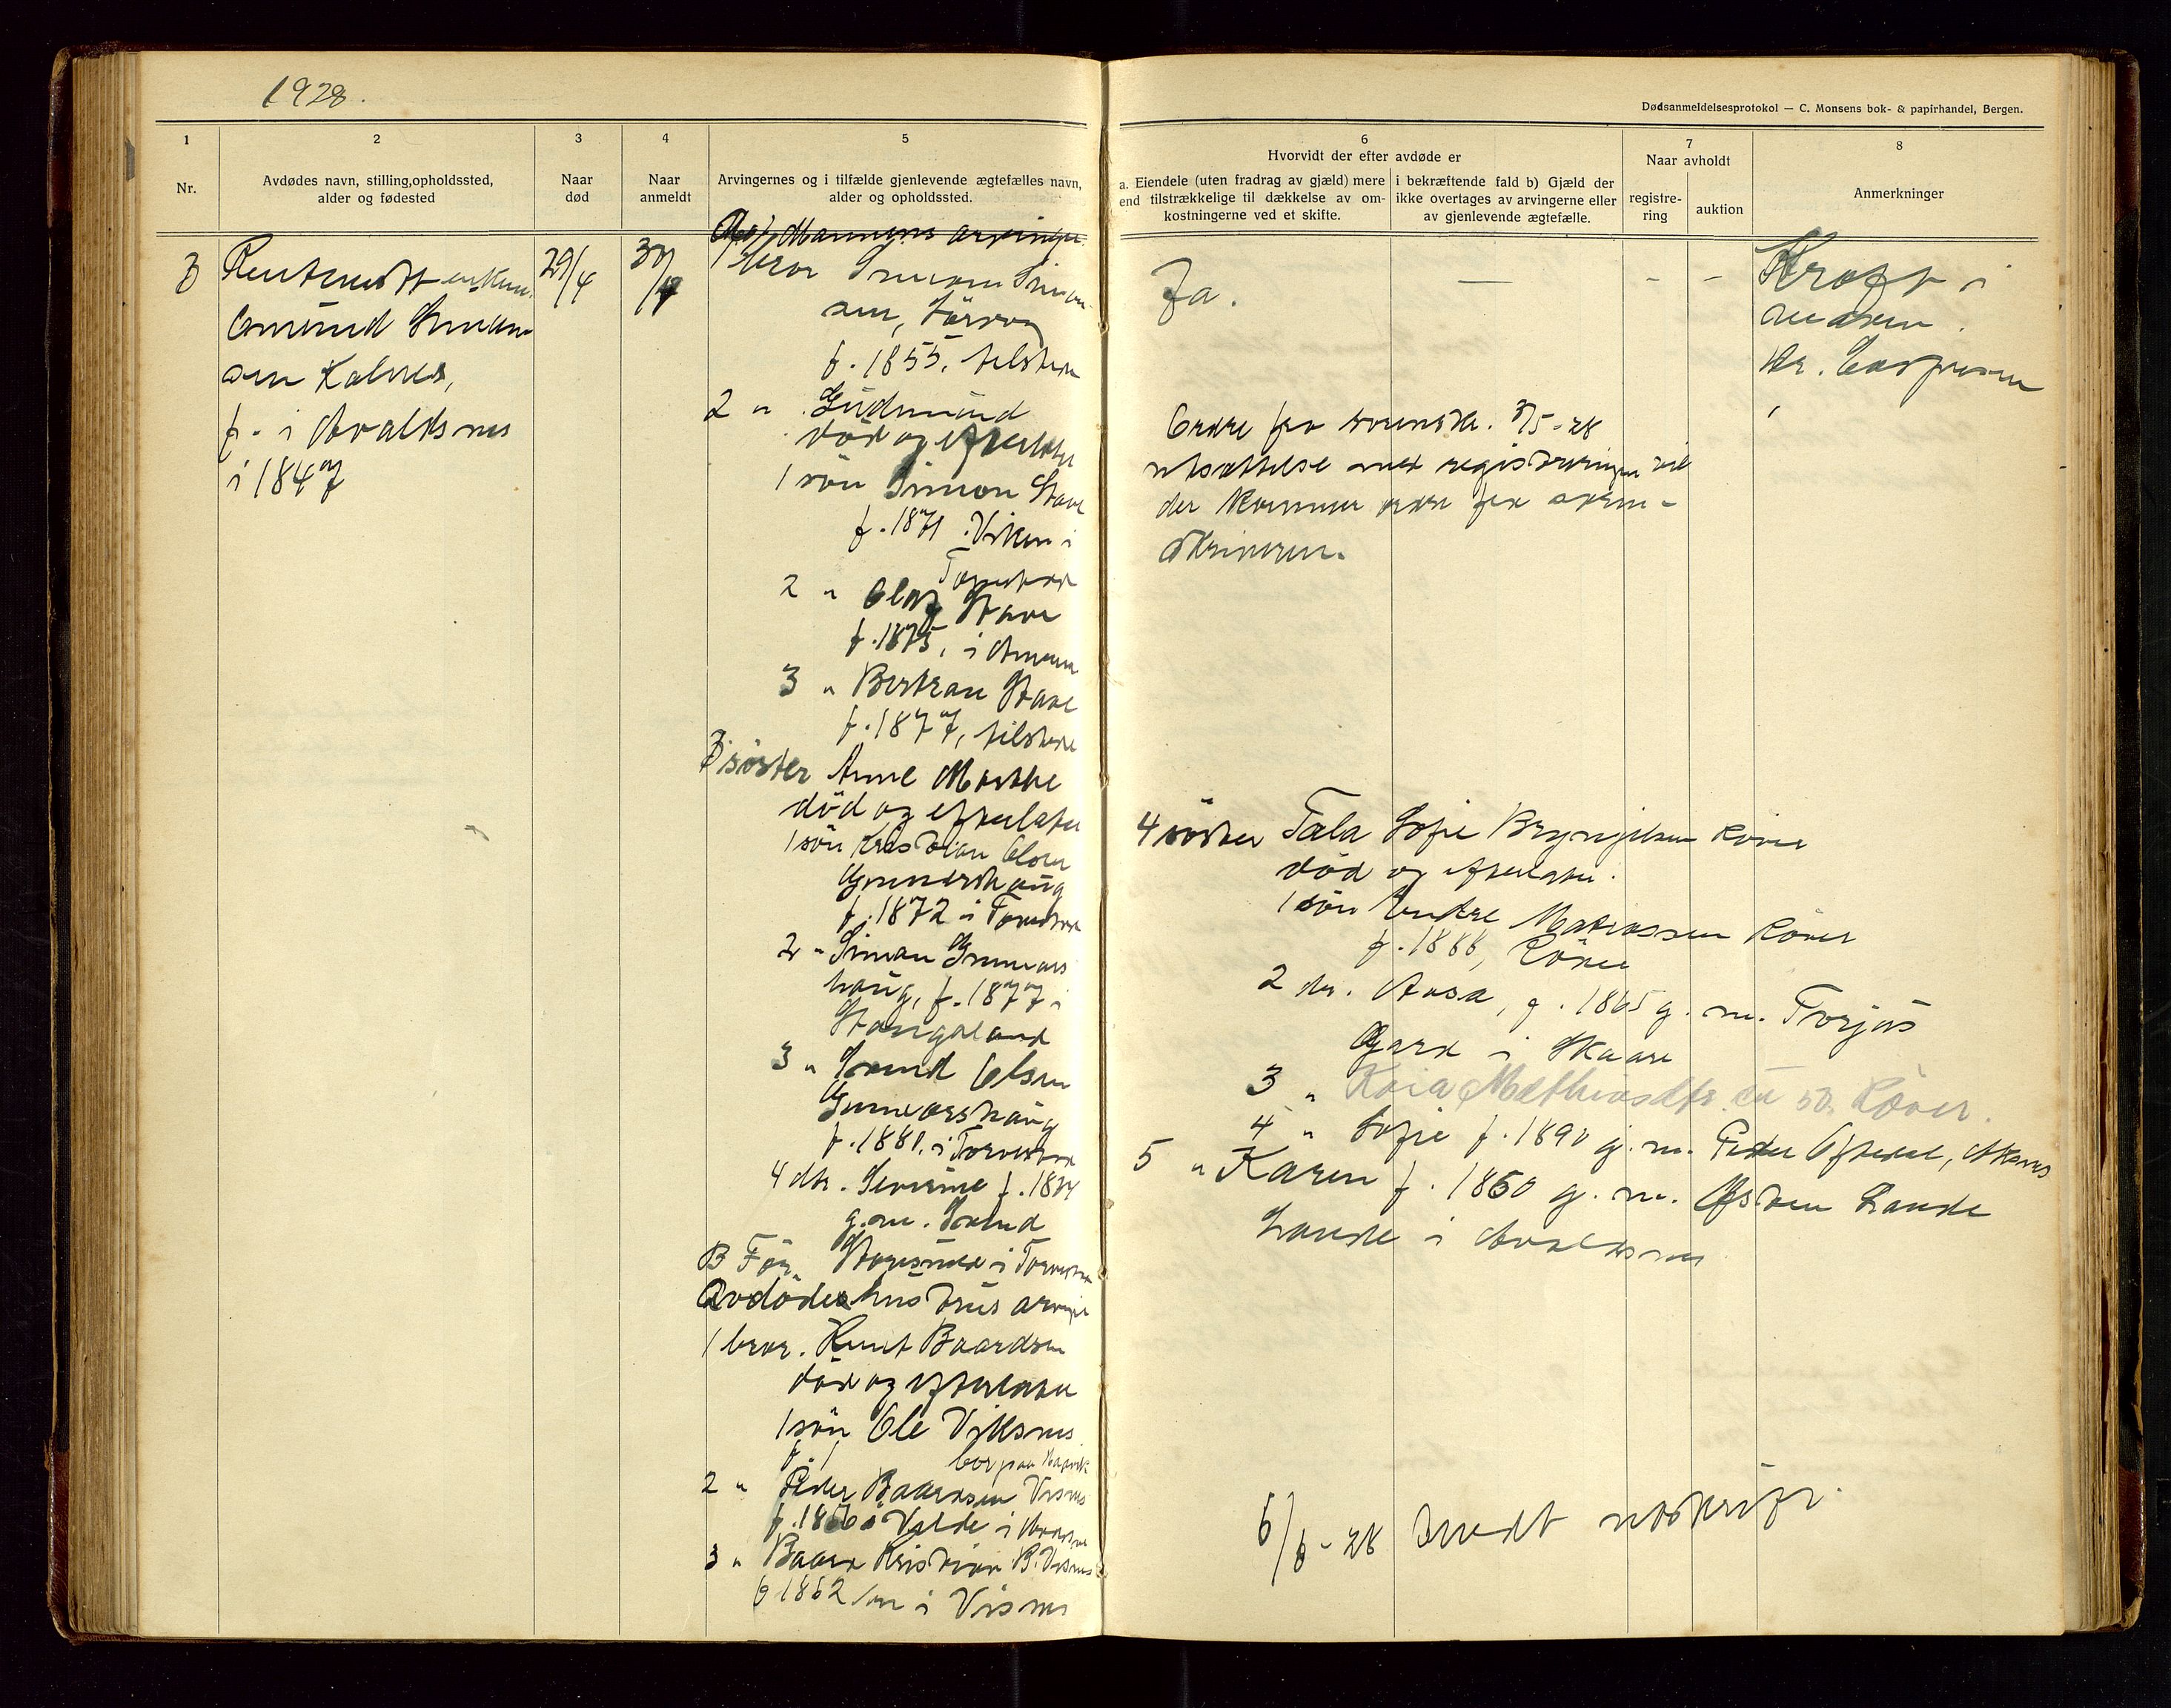 1928.
Dødsanmeldelsesprotokol — C. Monsens bok- & papirhandel, Bergen.
1
2
3
4
5
6
7
8
Nr.
Avdødes navn, stilling, opholdssted,
alder og fødested
Naar
død
Naar
anmeldt
Arvingernes og i tilfælde gjenlevende ægtefælles navn,
alder og opholdssted.
Hvorvidt der efter avdøde er
a. Eiendele (uten fradrag av gjæld) mere
end tilstrækkelige til dækkelse av om-
kostningerne ved et skifte.
i bekræftende fald b) Gjæld der
ikke overtages av arvingerne eller
av gjenlevende ægtefælle.
Naar avholdt
registre-
ring
auktion
Anmerkninger
3
Gmund Simon
sen Kalnes,
f. i Avaldsnes
i 1847
29/4
30/4
Mannens arvinger
1 bror Simon Simon
sen,
f. 1855, tilstede
2 " Gudmund
død og efterlater
1 søn Simon Stave
f. 1871 Viken i
Torvestad
2 " Olaf Stave
f. 1875, i Amerika
3 " Bertran Stave
f. 1877, tilstede
3 søster Anne Marthe
død og efterlater
1 søn Kristian Olsen
Gunnarshaug
f. 1872 i Torvestad
2 " Simon Gunnars
haug, f. 1877 i
Stangeland
3 " Svend Olsen
Gunnarshaug
f. 1881. i Torvestad
4 dtr. Severine f. 1874
g. m. Svend
Storesund i Torvestad
B For
Avdødes hustrus arvinger
1 bror. Knut Baardsen
død og efterlater
1 søn Ole Viksnes
f. 1
bor paa
2 " Peder Baardsen Visnes
i Avaldsnes
3 " Baard Kristian B. Visnes
1862 i Visnes
Ja.
—
-
-
Kraft i
Kr. Caspersen
Ordre fra sorensk. 3/5-28
utsættelse med registreringen til
der kommer ordre fra soren-
skriveren.
4 søster Tala Sofie Bryngelsen Røver
død og efterlater.
1 søn Endre Matiassen Røver
f. 1888, Røver
2 dr. Aasa, f. 1865 g. m. Torjus
Gard i Skaare
3 " Kaia Mathiasdtr. ca 50. Røver.
4 " Sofie f. 1890 g. m. Peder Eftedal, Skaare
5 " Karen f. 1850 g. m. Østen Lande
Lande i Avaldsnes
6/6-28 sendt utskrift.